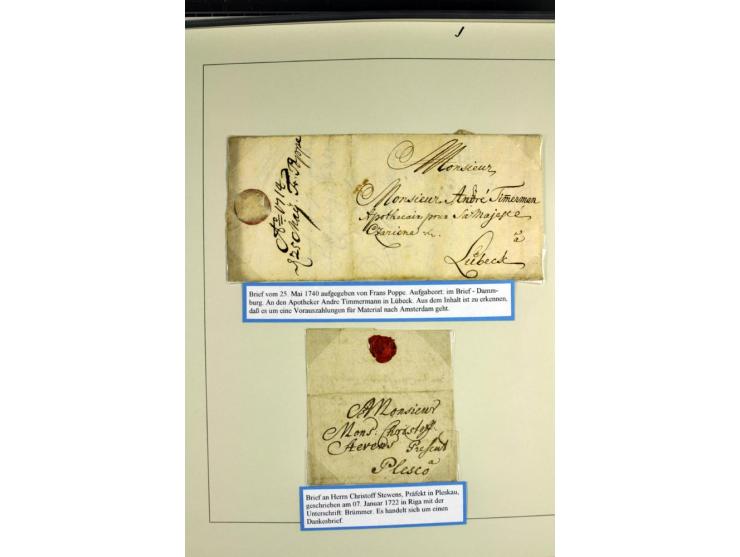 Aº 1714
25 May. Fr. Poppe
Monsieur
Monsieur André Timerman
Apothecair pour Sa Majesté
Czariene &c.
à
Lübeck
Brief vom 25. Mai 1740 aufgegeben von Frans Poppe. Aufgabeort: im Brief - Damm-
burg. An den Apotheker Andre Timmermann in Lübeck. Aus dem Inhalt ist zu erkennen,
daß es um eine Vorauszahlungen für Material nach Amsterdam geht.
Monsieur
Mons. Christoff
Stevens
à
Plesco
Brief an Herrn Christoff Stewens, Präfekt in Pleskau,
geschrieben am 07. Januar 1722 in Riga mit der
Unterschrift: Brümmer. Es handelt sich um einen
Dankesbrief.